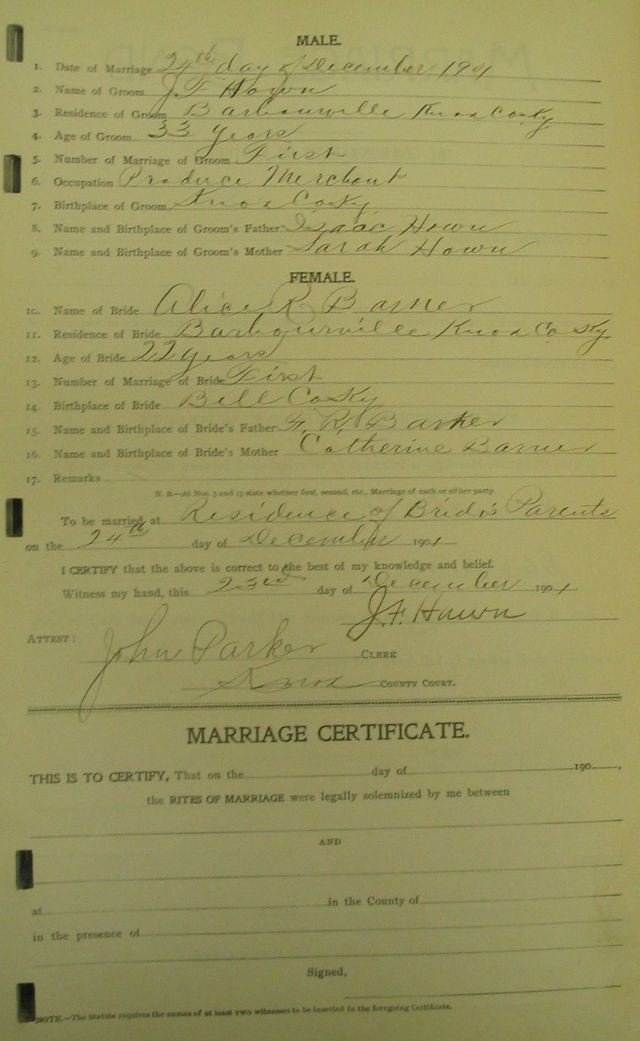 MALE.
1. Date of Marriage 24th day of December 1901
2. Name of Groom J. F. Hawn
3. Residence of Groom Barbourville Knox Co Ky
4. Age of Groom 33 years
5. Number of Marriage of Groom First
6. Occupation Produce Merchant
7. Birthplace of Groom Knox Co Ky
8. Name and Birthplace of Groom's Father Isaac Hawn
9. Name and Birthplace of Groom's Mother Sarah Hawn
FEMALE.
10. Name of Bride Alice R Barner
11. Residence of Bride Barbourville Knox Co Ky
12. Age of Bride 22 years
13. Number of Marriage of Bride First
14. Birthplace of Bride Bell Co Ky
15. Name and Birthplace of Bride's Father F. R.
16. Name and Birthplace of Bride's Mother Catherine Barner
17. Remarks
N. B.—At Nos. 5 and 13 state whether first, second, etc., Marriage of each or either party
To be married at Residence of Bride's Parents
on the 24th day of December 1901
I CERTIFY that the above is correct to the best of my knowledge and belief.
Witness my hand, this 23rd day of December 1901
J. F. Hawn
ATTEST: John Parker CLERK
Knox COUNTY COURT.
MARRIAGE CERTIFICATE.
THIS IS TO CERTIFY, That on the day of 190 ,
the RITES OF MARRIAGE were legally solemnized by me between
AND
at in the County of
in the presence of
Signed,
NOTE.—The Statute requires the names of at least two witnesses to be inserted in the foregoing Certificate.